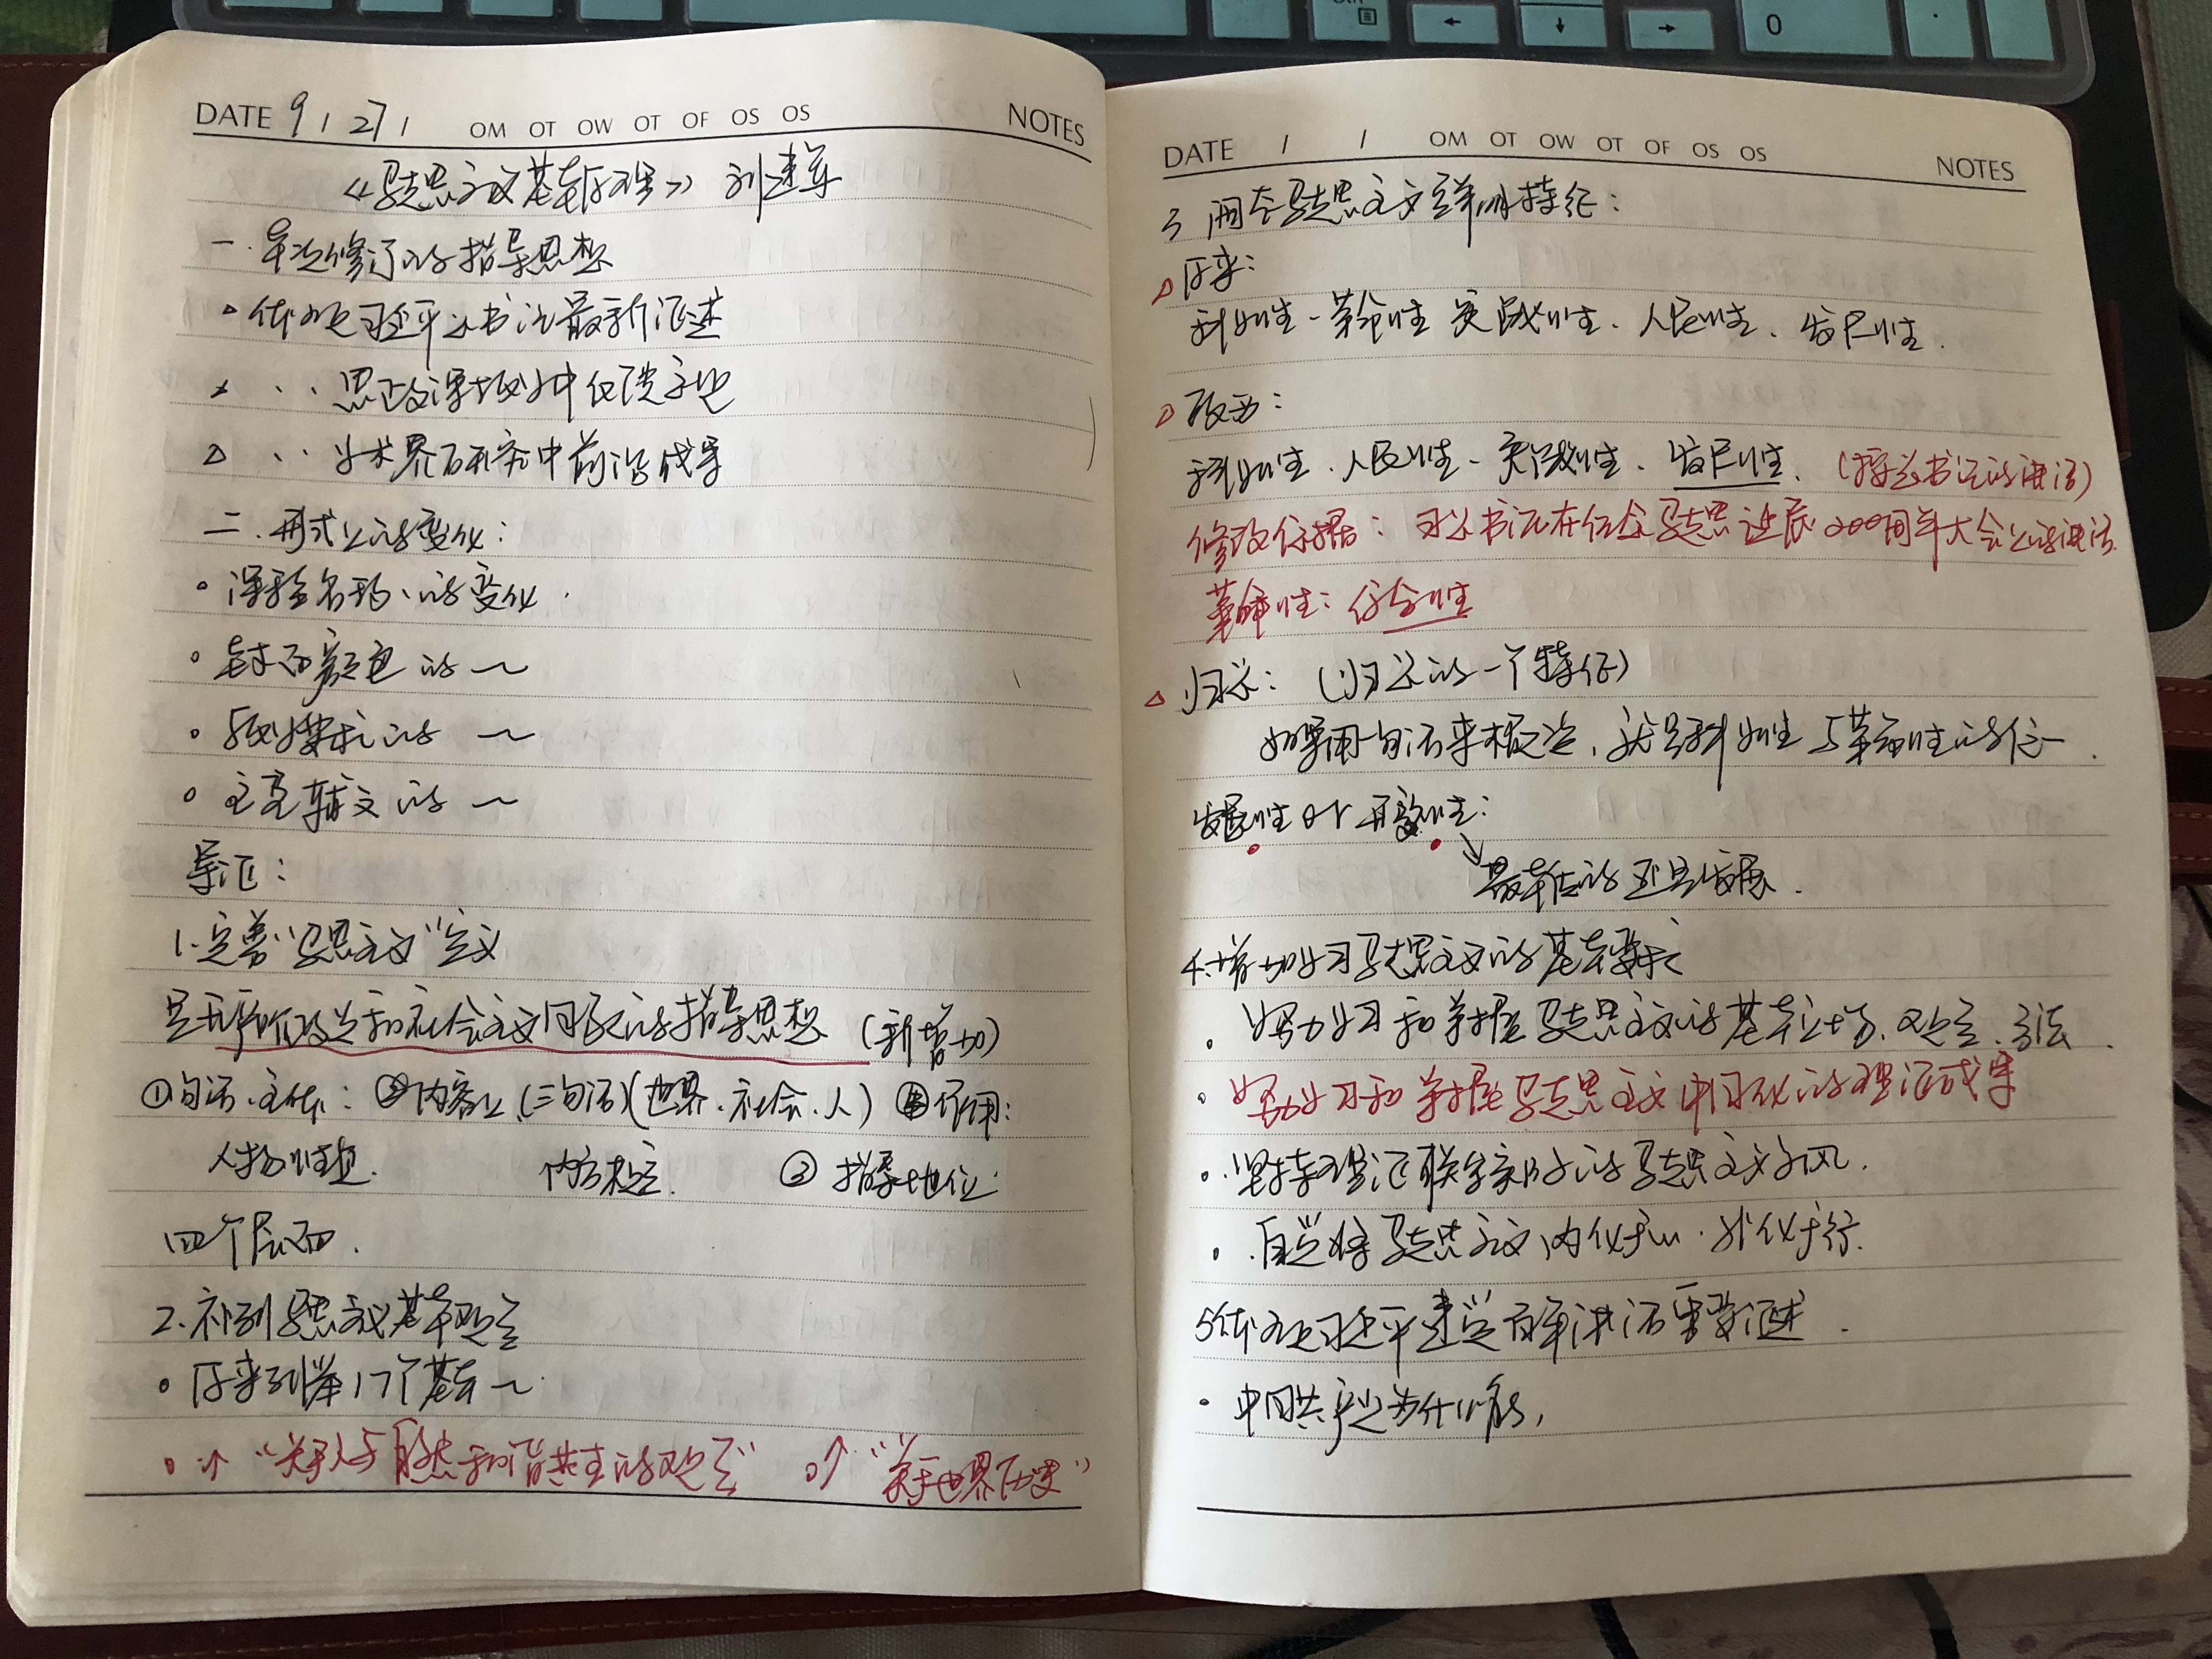 DATE 9 / 27 / OM OT OW OT OF OS OS NOTES
《马克思主义基本原理》 刘建军
一. 本次修订的指导思想
体现习近平总书记最新论述
〃 〃 思政课教学中
△ 〃 〃 学术界研究中前沿成果
二. 形式上的变化:
○ 课程名称的变化.
○ 封面颜色的 ～
○ 的 ～
○ 辅文的 ～
导论:
1.完善"马思主义"定义
是无产阶级政党和社会主义国家的指导思想 (新增加)
①句话.主体: ②内容上(三句话)(世界.社会.人) ④作用:
性质. 内容 ③ 指导地位.
四个层面.
2. 马思主义基本观点
○ 原来列举17个基本～
○ ↑ "关于人与自然和谐共生的观点" ○↑ "关于世界历史"
DATE / / OM OT OW OT OF OS OS NOTES
3 阐春马克思主义鲜明特征:
△ 原来:
科学性、革命性 实践性、人民性、发展性.
△ 现为:
科学性、人民性、实践性、发展性. (按总书记的讲话)
修改依据: 习总书记在纪念马克思诞辰200周年大会上的讲话.
革命性:
△ 归总: (归总的一个特征)
如果用一句话来概括,就是科学性与革命性的统一.
发展性 or 开放性:
↘ 最本质的还是发展.
4.增加学习马克思主义的基本要求
○ 努力学习和掌握马克思主义的基本立场、观点、方法.
○ 努力学习和掌握马克思主义中国化的理论成果
○ 坚持理论联系实际的马克思主义学风.
○ 自觉将马克思主义内化于心.外化于行.
5体现习近平建党百年讲话重要论述.
○ 中国共产党为什么能,